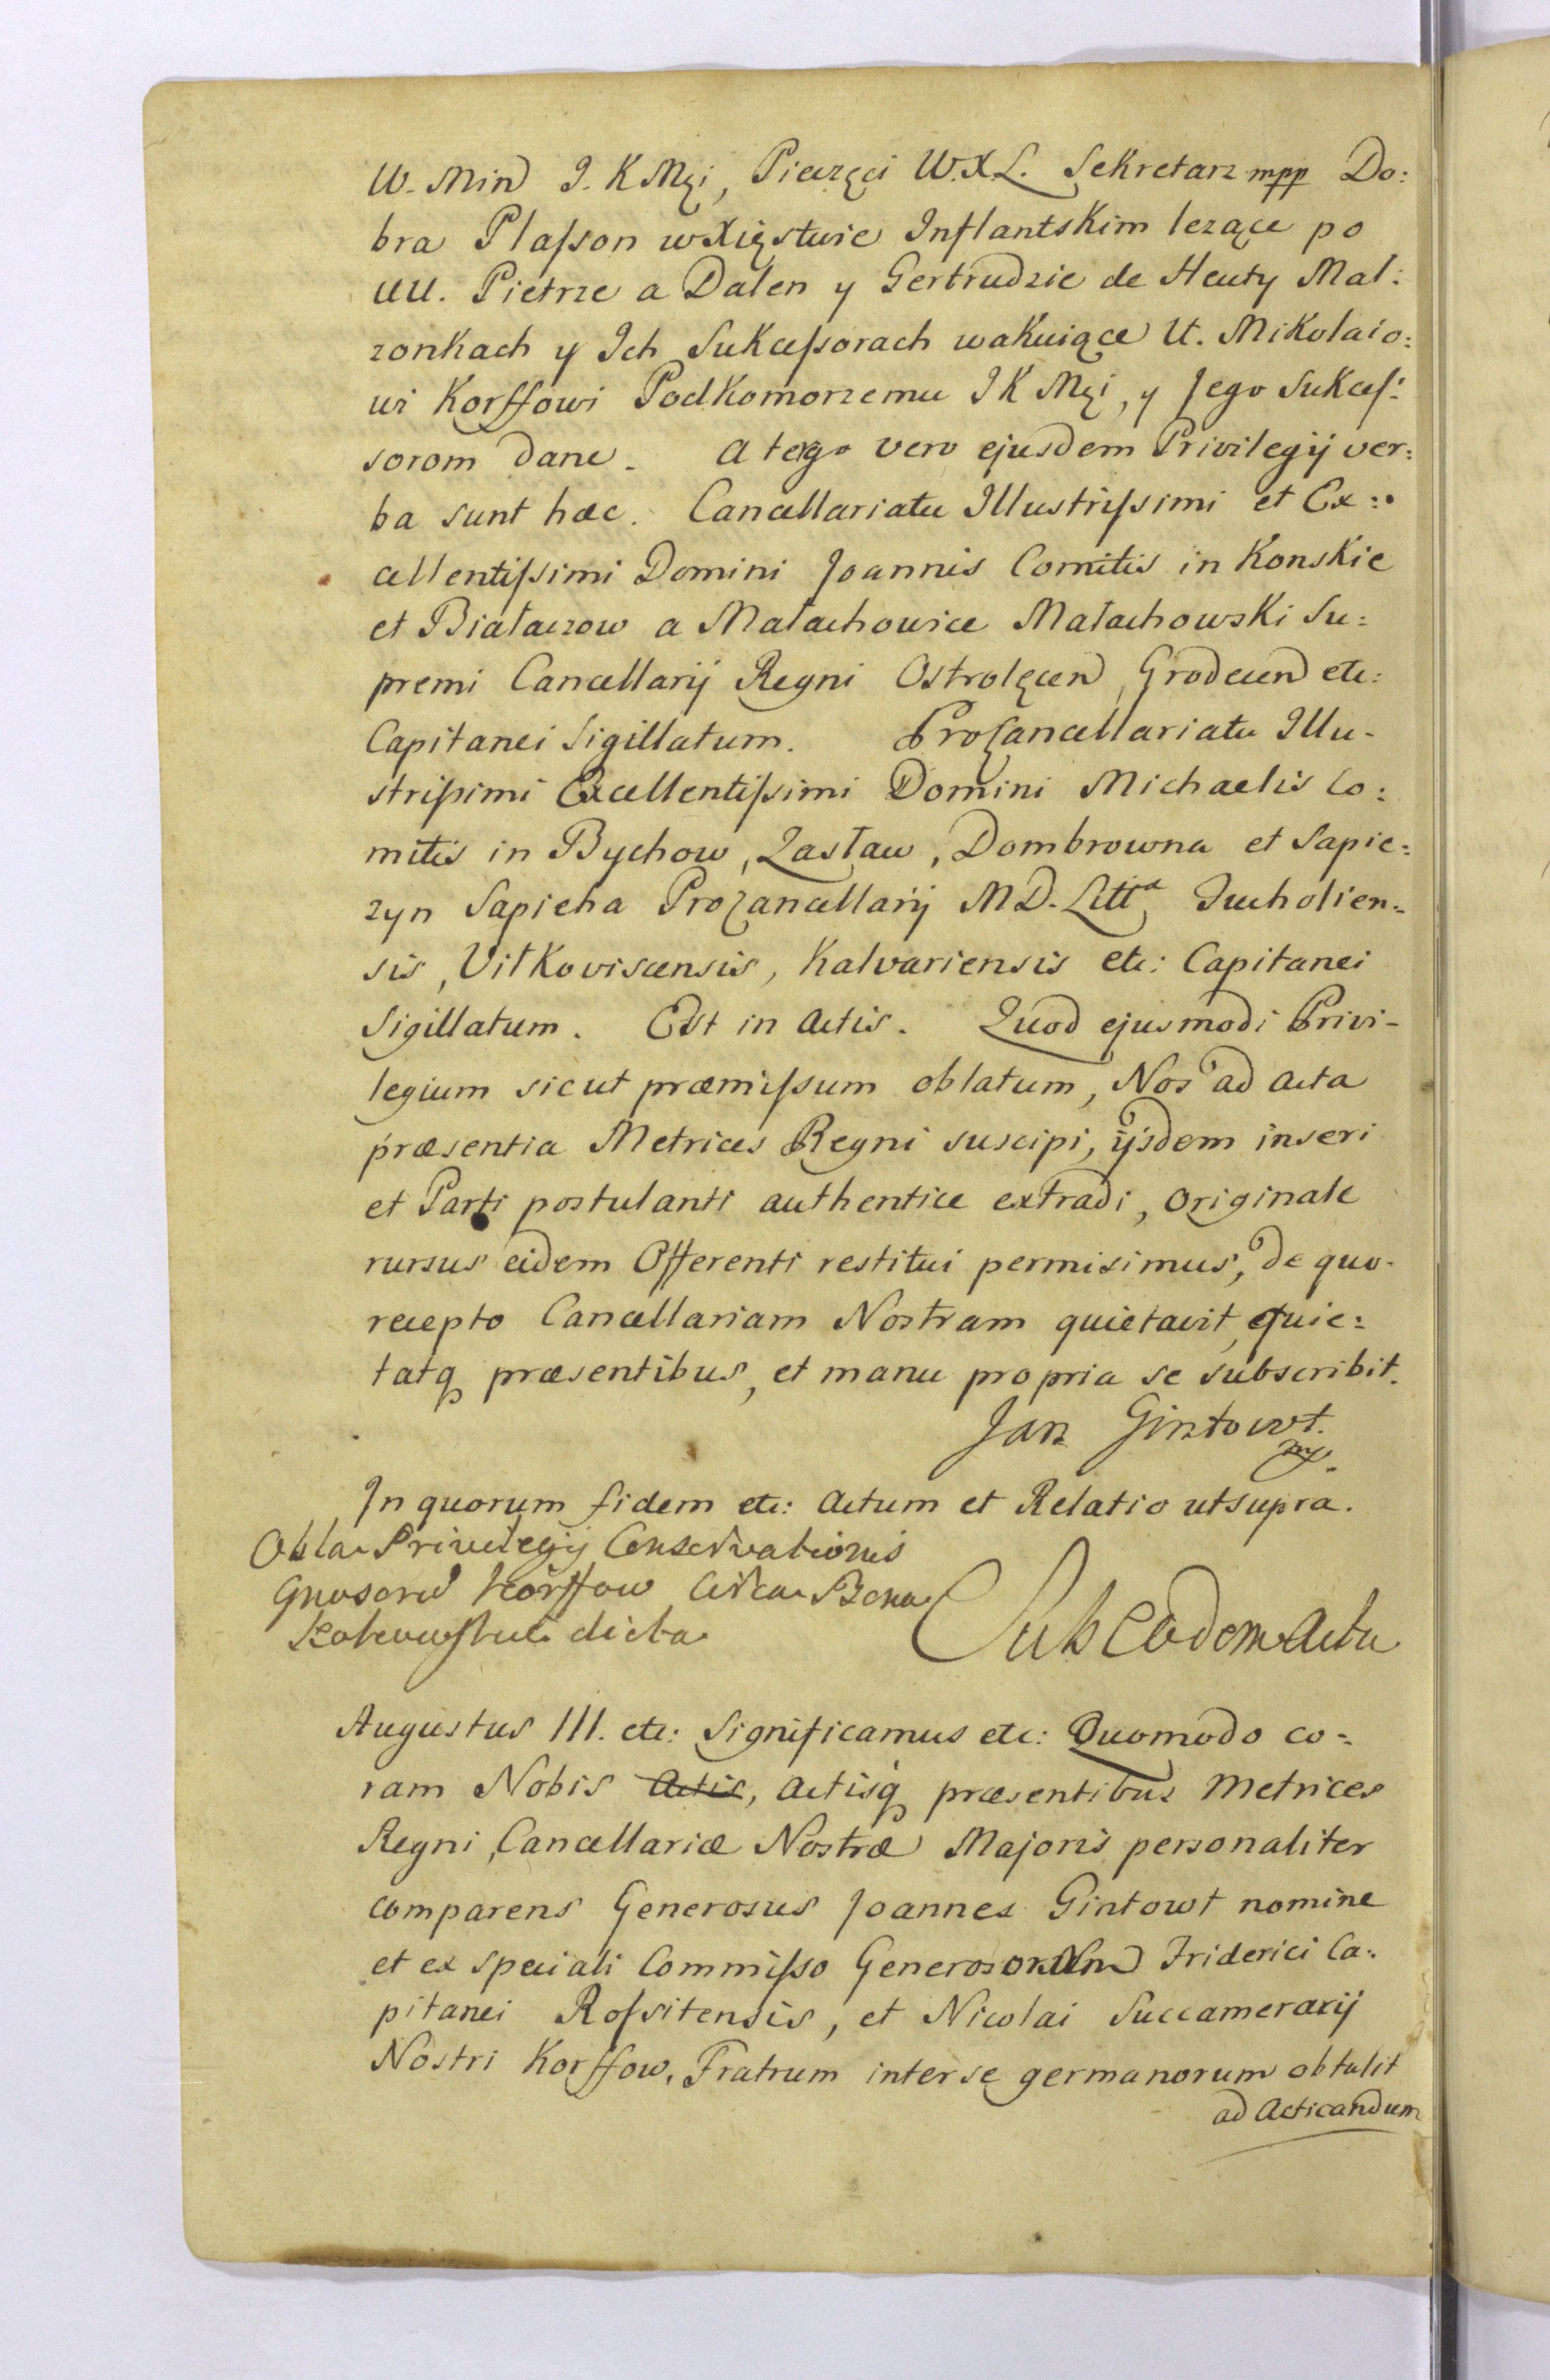 W. Min J. K Mçi, Pieczęci W.X.L. Sekretarz mpp Do:
bra Plaſson w Xięstwie Inflantskim lezące po
UU. Pietrze a Dalen y Gertrudzie de Heuty Mal:
zonkach y Ich Sukceſsorach wakuiące U. Mikolaio:
wi Korffowi Podkomorzemu J K Mçi, y Jego Sukceſ:
sorom dane. A tergo vero ejusdem Privilegij ver:
ba sunt hæc. Cancellariatu Illustriſsimi et Ex:
cellentiſsimi Domini Joannis Comitis in Konskie
et Białaczow a Małachowice Małachowski Su:
premi Cancellarij Regni Ostrolęcen, Grodecen etc:
Capitanei Sigillatum. Procancellariatu Illu-
striſsimi Excellentiſsimi Domini Michaelis Co:
mitis in Bychow, Zasław, Dombrowna et Sapie:
zyn Sapieha Procancellarij M D. Litt^æ Tucholien-
sis, Vilkoviscensis, Kalvariensis etc: Capitanei
Sigillatum. Est in Actis. Quod ejusmodi Privi-
legium sicut præmiſsum oblatum, Nos ad Acta
præsentia Metrices Regni suscipi, ijsdem inseri
et Parti postulanti authentice extradi, Originale
rursus eidem Offerenti restitui permisimus, de quo
recepto Cancellariam Nostram quietavit, quie:
tatq præsentibus, et manu propria se subscribit.
Jan Gintowt.
mp.
In quorum fidem etc: Actum et Relatio utsupra.
Obla Privilegij Conservationis
Gnosorū Korffow circa Bona
dicta
Sub Eodem Actu
Augustus III. etc: Significamus etc: Quomodo co-
ram Nobis Actis, Actisq præsentibus Metrices
Regni Cancellariæ Nostræ Majoris personaliter
comparens Generosus Joannes Gintowt nomine
et ex speciali Commiſso Generosorum Friderici Ca:
pitanei Roſsitensis, et Nicolai Succamerarij
Nostri Korffow, Fratrum inter se germanorum obtulit
ad Acticandum